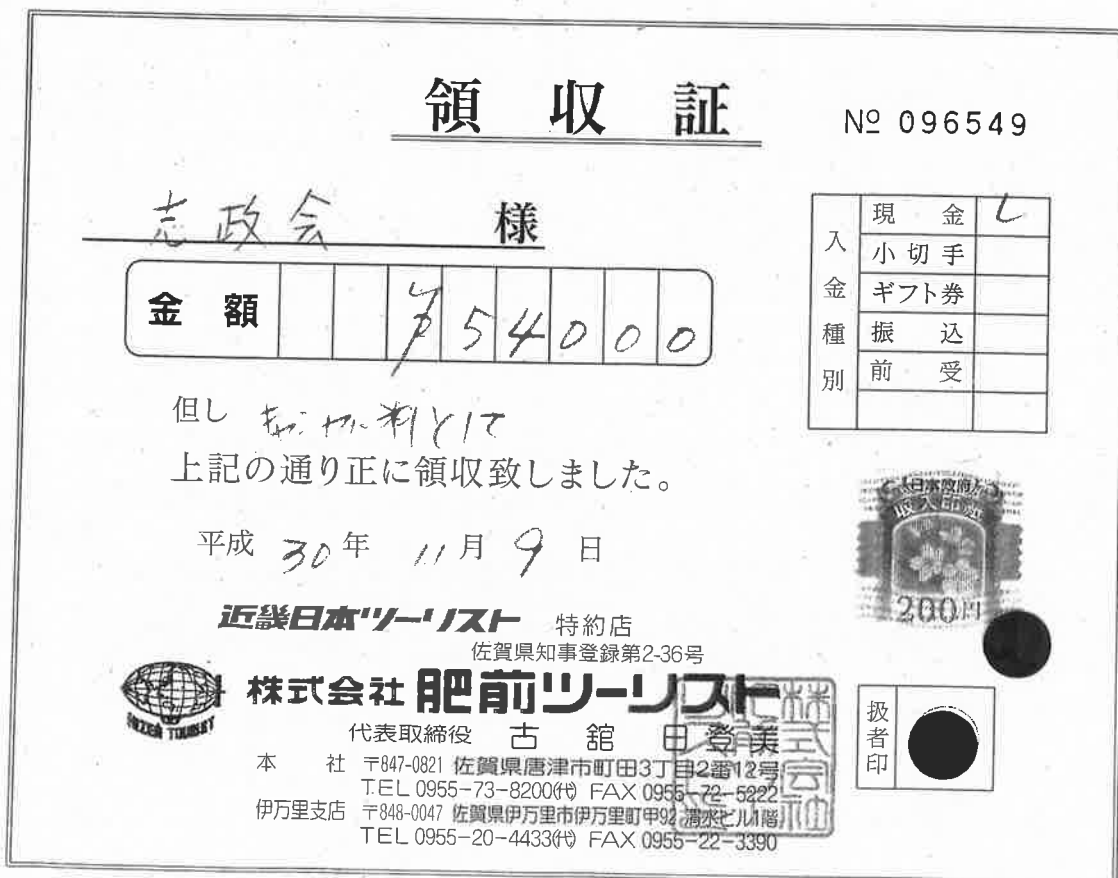 領収証
№ 096549
志政会 様
金額 ¥54000
入金種別
現金 レ
小切手
ギフト券
振込
前受
但し キャンセル料として
上記の通り正に領収致しました。
平成 30年 11月 9日
日本政府
収入印紙
200円
近畿日本ツーリスト 特約店
佐賀県知事登録第2-36号
HIZEN TOURIST
株式会社 肥前ツーリスト
代表取締役 古舘田登美
扱者印
本社 〒847-0821 佐賀県唐津市町田3丁目2番12号
TEL 0955-73-8200㈹ FAX 0955-72-5222
伊万里支店 〒848-0047 佐賀県伊万里市伊万里町甲92 清水ビル1階
TEL 0955-20-4433㈹ FAX 0955-22-3390